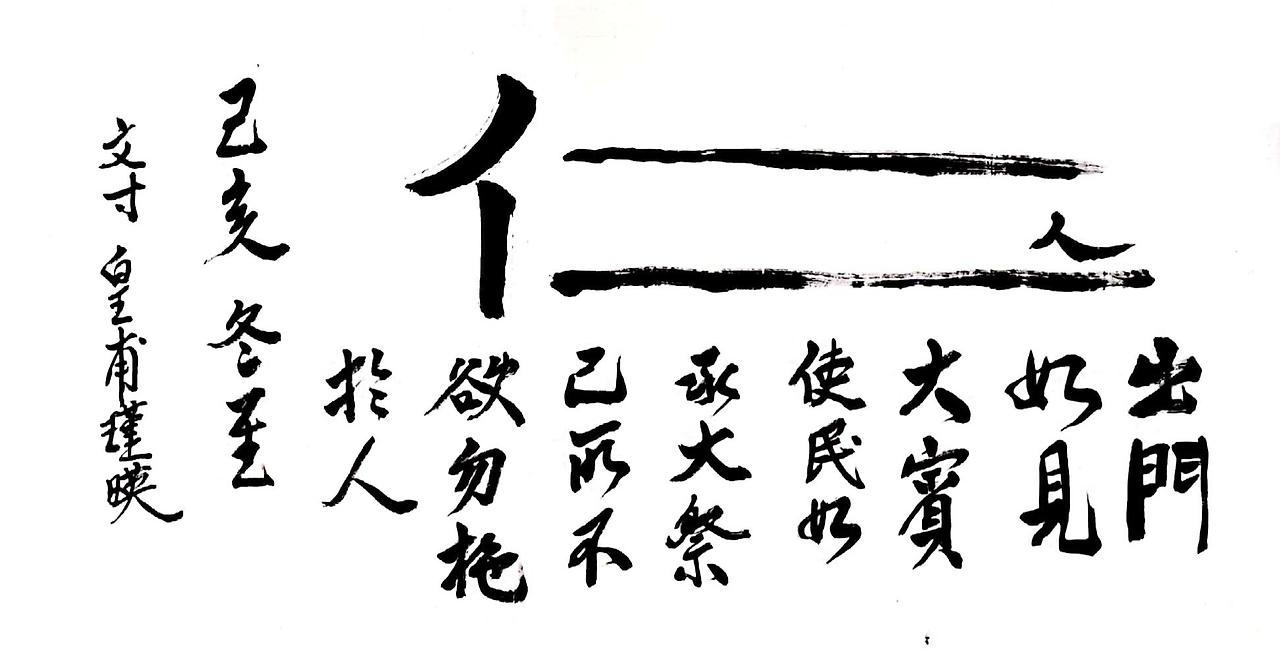 仁
人
出門
如見
大賓
使民如
承大祭
己所不
欲勿施
於人
己亥 冬至
文寸 皇甫瑾暎